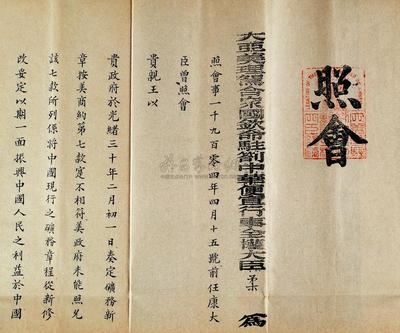 照會
大亞美理駕合眾國欽命駐劄中華便宜行事全權大臣
為
照會事一千九百零四年四月十五號前任康大
臣曾照會
貴親王以
貴政府於光緒三十年二月初一日奏定礦務新
章按美商約第七款寔不相符美政府未能照允
該七款所列係將中國現行之礦務章程從新修
改妥定以期一面振興中國人民之利益於中國